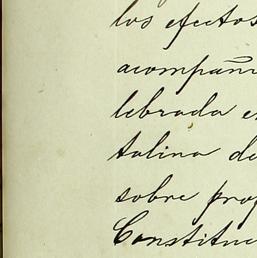 los efectos
acompañ
lebrada e
talina de
sobre pro
Constitu